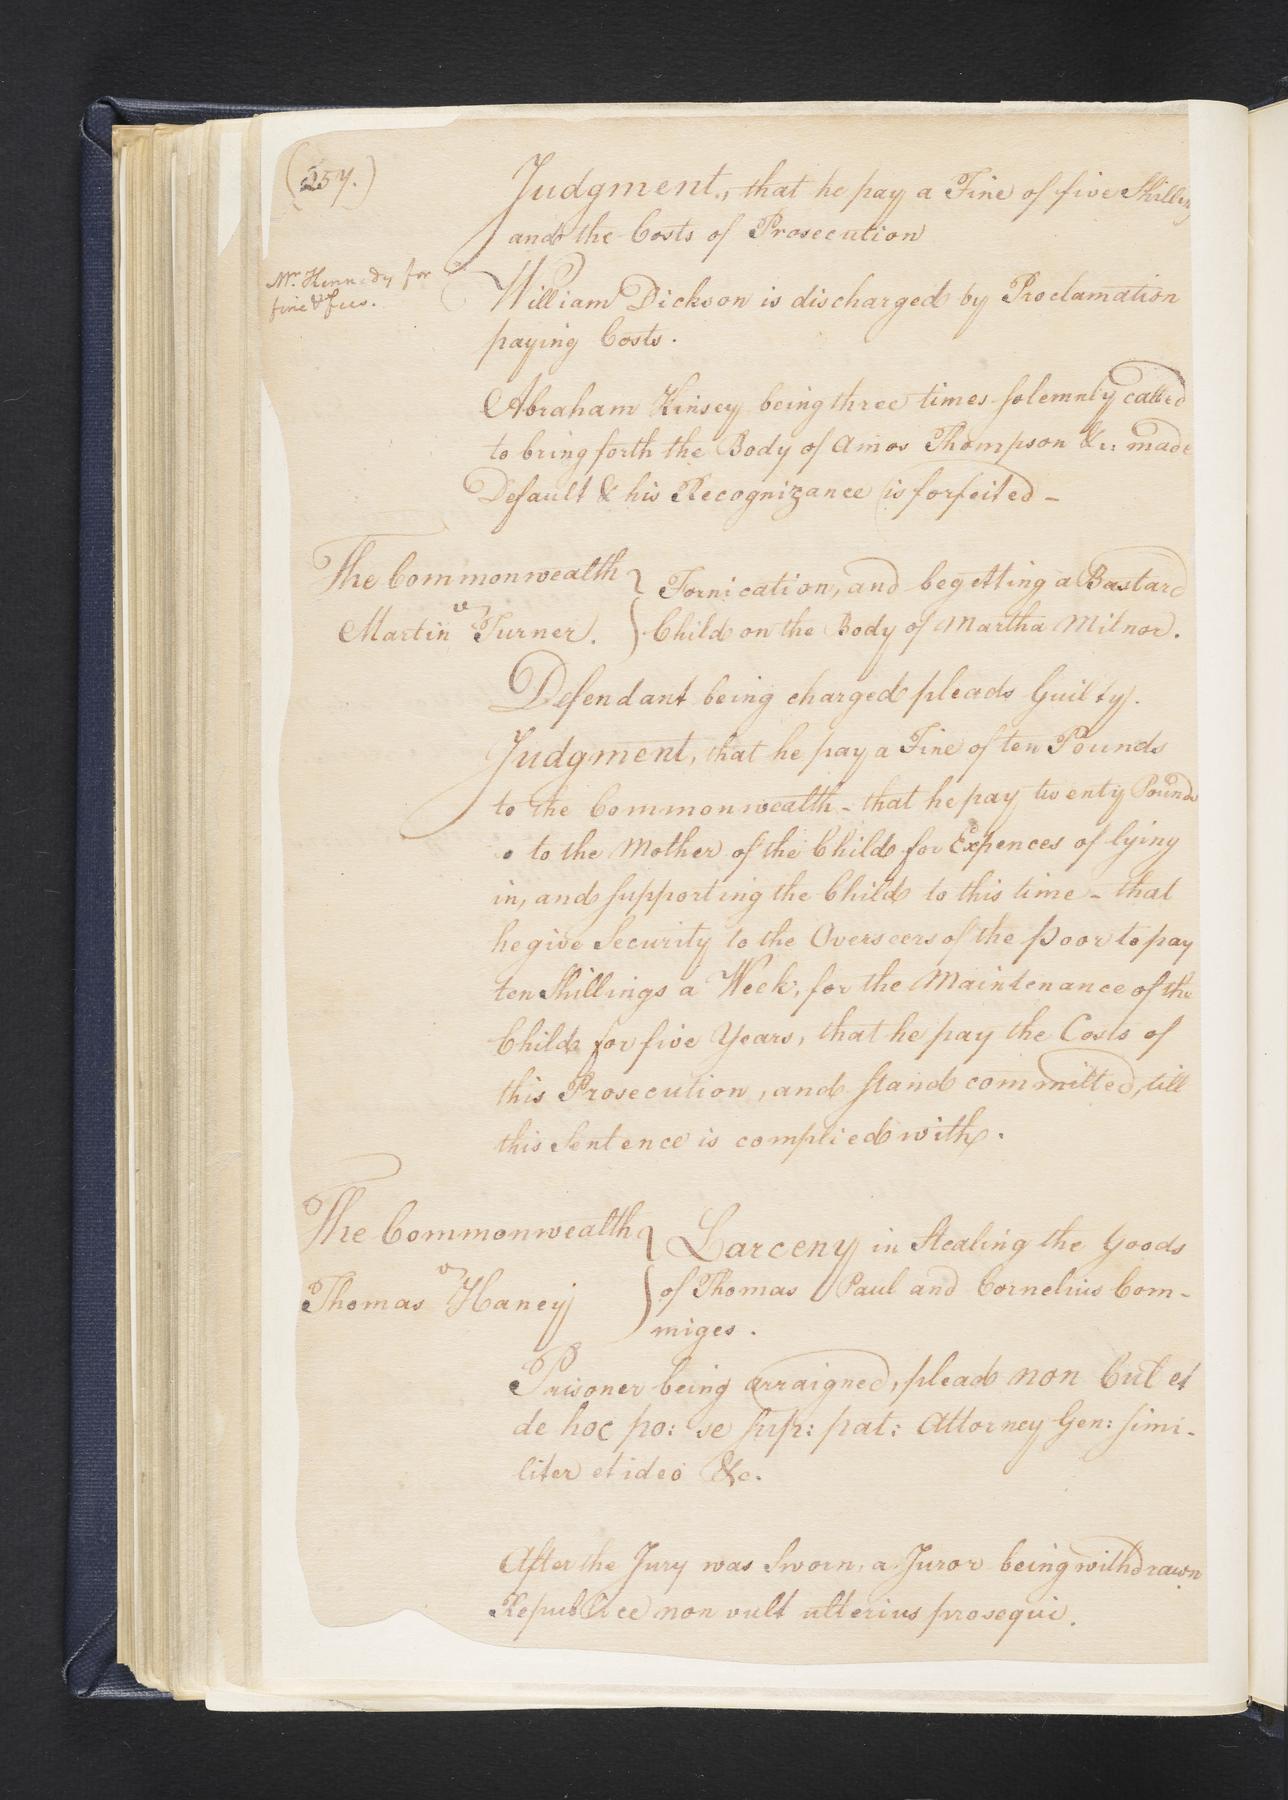 (257.)
Judgment, that he pay a Fine of five Shillings
and the Costs of Prosecution
Mr. Kennedy for
fine & fees.
William Dickson is discharged by Proclamation
paying Costs.
Abraham Kinsey being three times solemnly called
to bring forth the Body of Amos Thompson &c: made
Default & his Recognizance is forfeited -
The Commonwealth
v
Martin Turner.
Fornication, and begetting a Bastard
Child on the Body of Martha Milnor.
Defendant being charged pleads Guilty.
Judgment, that he pay a Fine of ten Pounds
to the Commonwealth - that he pay twenty Pounds
to the Mother of the Child for Expences of lying
in, and supporting the Child to this time - that
he give Security to the Overseers of the poor to pay
ten Shillings a Week, for the Maintenance of the
Child for five Years, that he pay the Costs of
this Prosecution, and stand committed, till
this Sentence is complied with.
The Commonwealth
v
Thomas Haney
Larceny in Stealing the Goods
of Thomas Paul and Cornelius Com-
miges.
Prisoner being arraigned, plead non Cul et
de hoc po: se sup: pat: Attorney Gen: simi-
liter et ideo &c.
After the Jury was Sworn, a Juror being withdrawn
Republice non vult ulterius prosequi.